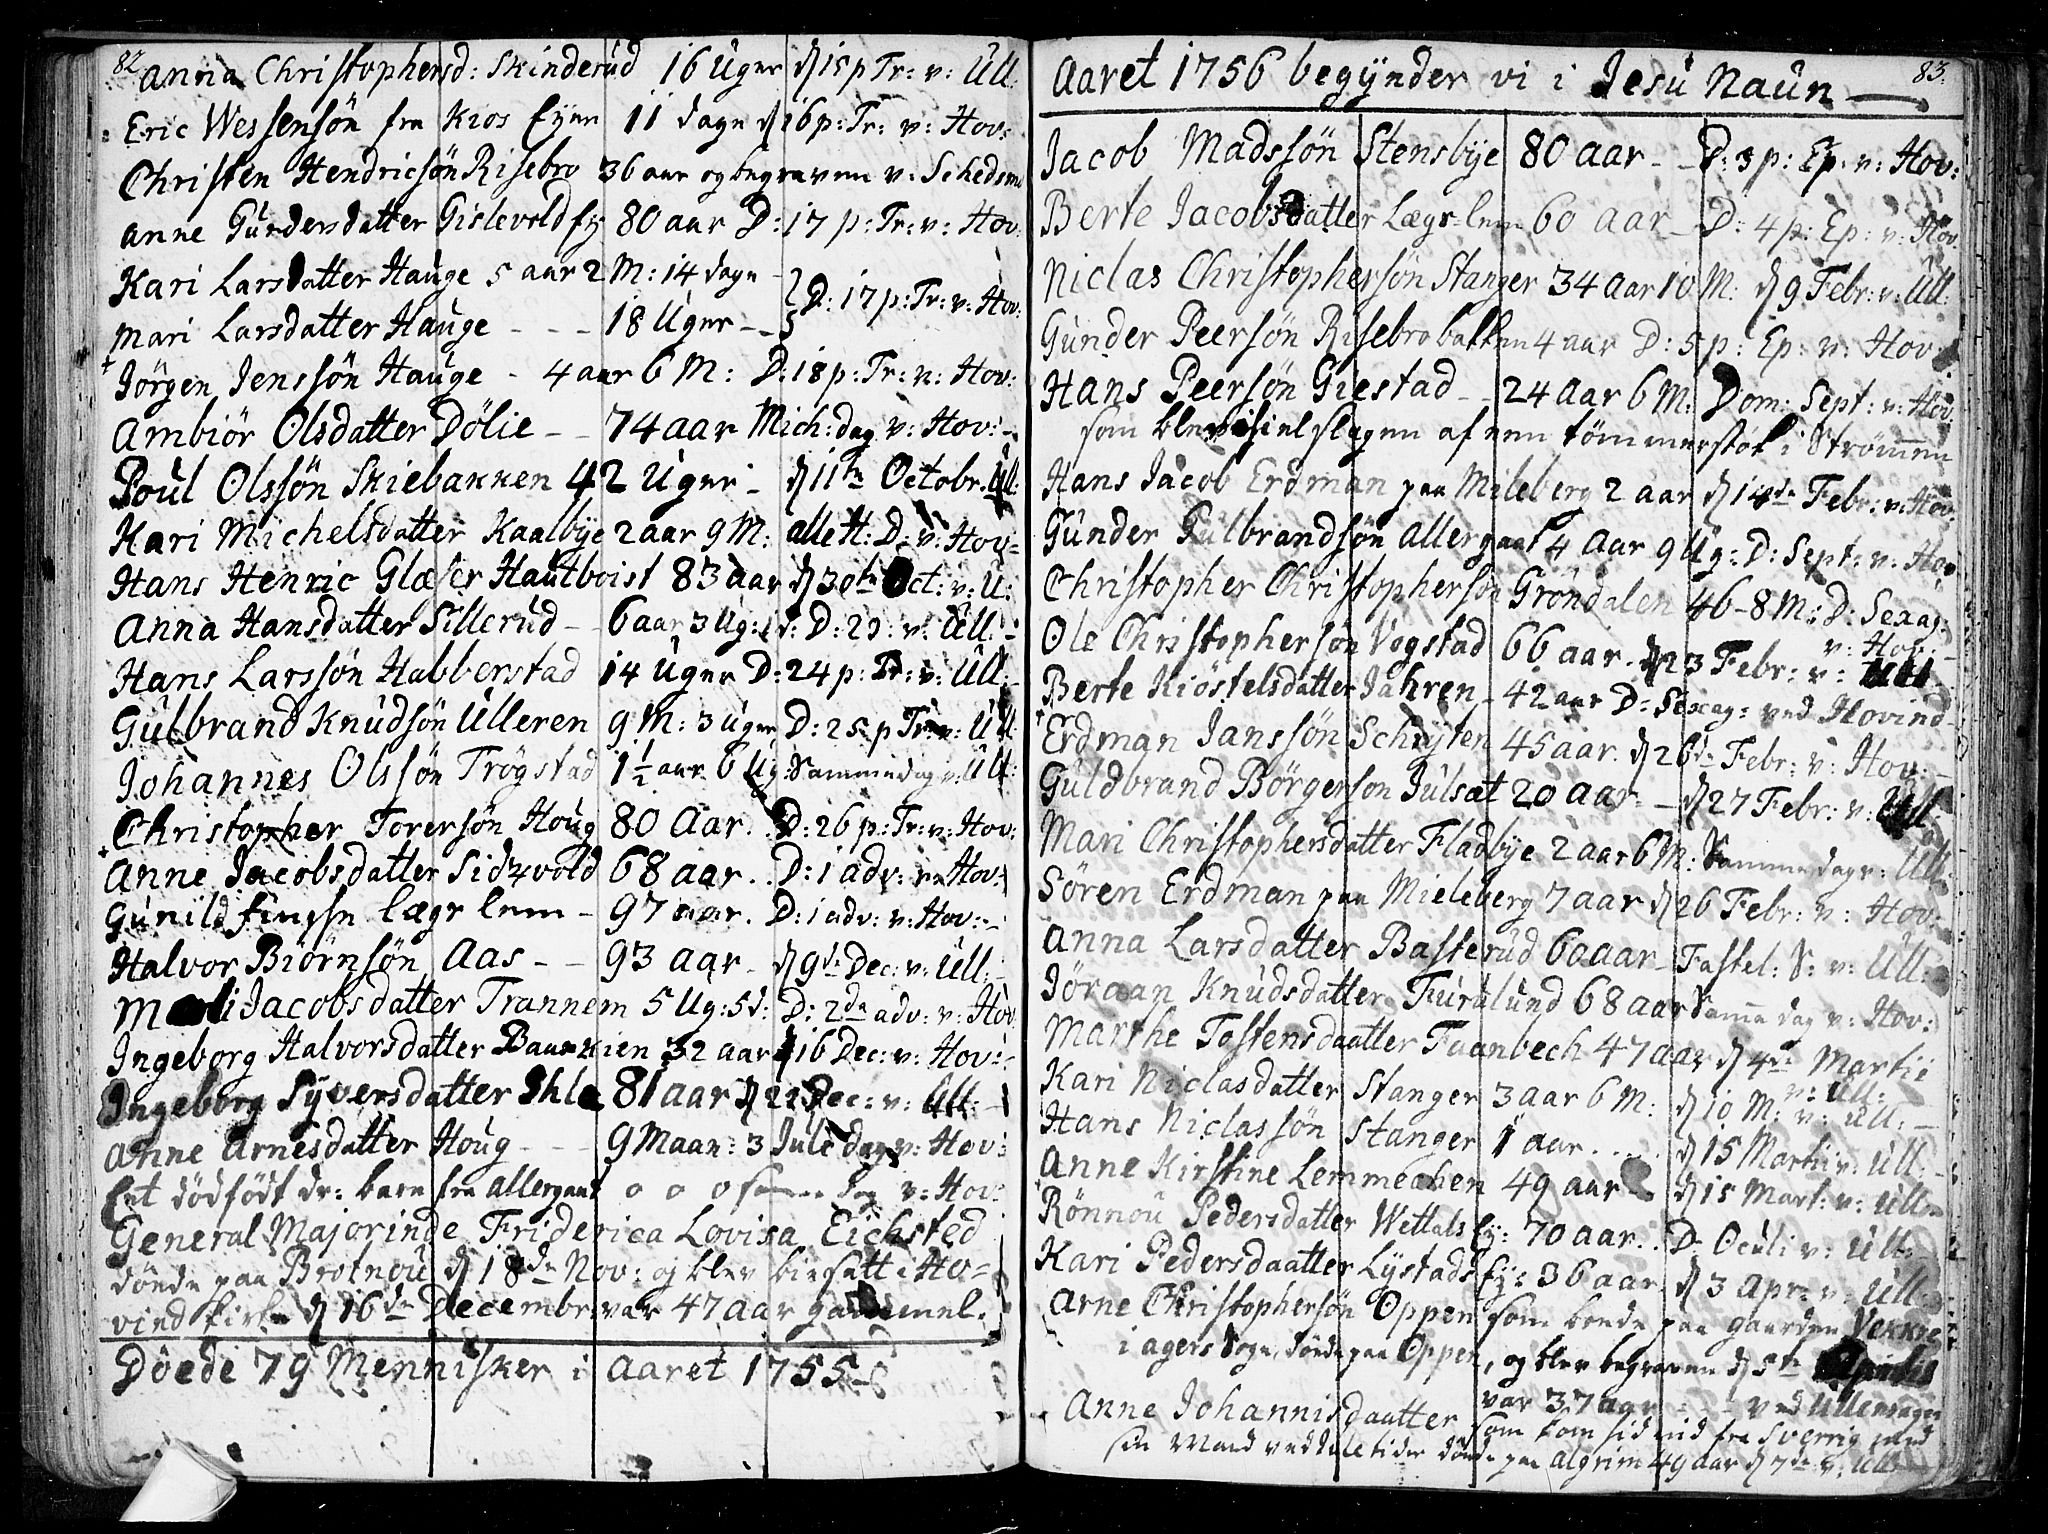 82
Anna Christophersd: Skinderud 16 Uger d 15 p Tr: v: Ull.
Eric Wessensön fra Kios Eyer 11 dage d 16 p: Tr: v: Hov:
Christen Hendricsön Risebro 36 aar og begraven v: Schedsm
Anne Gundersdatter Gislevold fz 80 aar D: 17 p: Tr: v: Hov:
Kari Larsdatter Hauge 5 aar 2 M: 14 dage
Mari Larsdatter Hauge - - - 18 Uger - D: 17 p: Tr: v: Hov:
Jörgen Jenssön Hauge - 4 aar 6 M: D: 18 p: Tr: v: Hov:
Ambiör Olsdatter Dölie - - 74 aar Mich: dag v: Hov: -
Poul Olssön Skiebakken 42 Uger - d 11te Octobr. Ull:
Kari Michelsdatter Kaalbye 2 aar 9 M: alle H: D: v: Hov=
Hans Henric Glæser Hautboist 83 aar d 30te Oct: v: U:
Anna Hansdatter Sillerud - - 6 aar 3 Ug: D: 23: v: Ull: -
Hans Larssön Habberstad 14 Uger D: 24 p: Tr: v: Ull: -
Gulbrand Knudsön Ulleren 9 M: 3 Uger D: 25 p Tr: v: Ull
Johannes Olssön Trögstad 1½ aar 6 Ug: Sammedag v: Ull:
Christopher Torersön Houg 80 Aar. D: 26 p: Tr: v: Hov:
Anne Jacobsdatter Sidzvold 68 aar. . D: 1 adv: v: Hov:
Gunild Finese lægs lem - 97 aar. D: 1 adv: v: Hov: -
Halvor Biörnsön Aas - - 93 aar - d 9de Dec: v: Ull: -
Mali Jacobsdatter Trannem 5 Ug: 5 d: D: 2de adv: v: Hov
Ingeborg Halvorsdatter Baurkien 32 aar d 16 Dec: v: Hov: -
Ingeborg Syversdatter Ihle 81 aar d 22 Dec: v: Ull: -
Anne Arnesdatter Houg - - - 9 Maan: 3 Jule dag v: Hov:
Eet dödfödt dr: barn fra allergaat o o o samme dag v: Hov:
General Majorinde Friderica Lovisa Eichsted
döede paa Brotnou d 18de Nov: og blev biesatt i Ho=
vind kirke d 16de Decembr: var 47 aar gammel.
Döede 79 Mennisker i Aaret 1755
83.
Aaret 1756 begynder vi i Jesu Naun
Jacob Madssön Stensbye 80 aar - - D: 3 p: Ep. v: Hov:
Berte Jacobsdatter Lægs-lem 60 aar - D: 4 p: Ep: v: Hov.
Niclas Christophersön Stanger 34 aar 10 M: d 9 Febr: v: Ull:
Gunder Peersön Risebrobakken 4 aar D: 5 p: Ep: v: Hov
Hans Peersön Giestad - - 24 aar 6 M: Dom: Sept: v: Hov:
som blev ihielslagen af een tömmerstok i Strömmen
Hans Jacob Erdman paa Mileberg 2 aar d 14de Febr: v: Hov:
Gunder Gulbrandsön Allergaat 4 aar 9 Ug: D: Sept: v: Hov
Christopher Christophersön Gröndalen 46 - 8 M: D: Sexag:
v: Hov: -
Ole Christophersön Vogstad 66 aar. d 23 Febr: v: Ull
Berte Kiöstelsdatter Jahren - 42 aar D: Sexag: ved Hovind -
Erdman Janssön Schyten 45 aar. d 26de Febr: v: Hov: -
Guldbrand Börgerson Julsæt 20 aar - d 27 Febr: v: Ull.
Mari Christophersdatter Fladbye 2 aar 6 M: Samme dag v: Ull:
Sören Erdman paa Mieleberg 7 aar d 26 Febr: v: Hov:
Anna Larsdatter Basterud 60 aar - Fastel: S: v: Ull:
Jöraan Knudsdatter Furulund 68 aar Samme dag v: Hov:
Marthe Tostensdaatter Faanbech 47 aar d 4de Martii
v: Ull:
Kari Niclasdatter Stanger 3 aar 6 M: d 10 M: v: Ull: -
Hans Niclassön Stanger 1 aar . . . . d 15 Martii v: Ull: -
Anne Kirstine Lemmechen 49 aar d 15 Mart: v: Ull
Rönnou Pedersdatter Wettals fz: 70 aar. . D: Oculi v: Ull: -
Kari Pedersdaatter Lystads fz: 36 aar d 3 Apr: v: Ull
Arne Christophersön Oppen som boede paa gaarden Vekkre
i Agers Sogn, döede paa Oppen, og blev begraven d 5te Aprilis
var 37 aar - - - ved Ullensager
Anne Johannisdaatter som kom hid ind fra Sverrig med
sin Mand ved Juletider döede paa Algrim 49 aar d 7de v: Ull